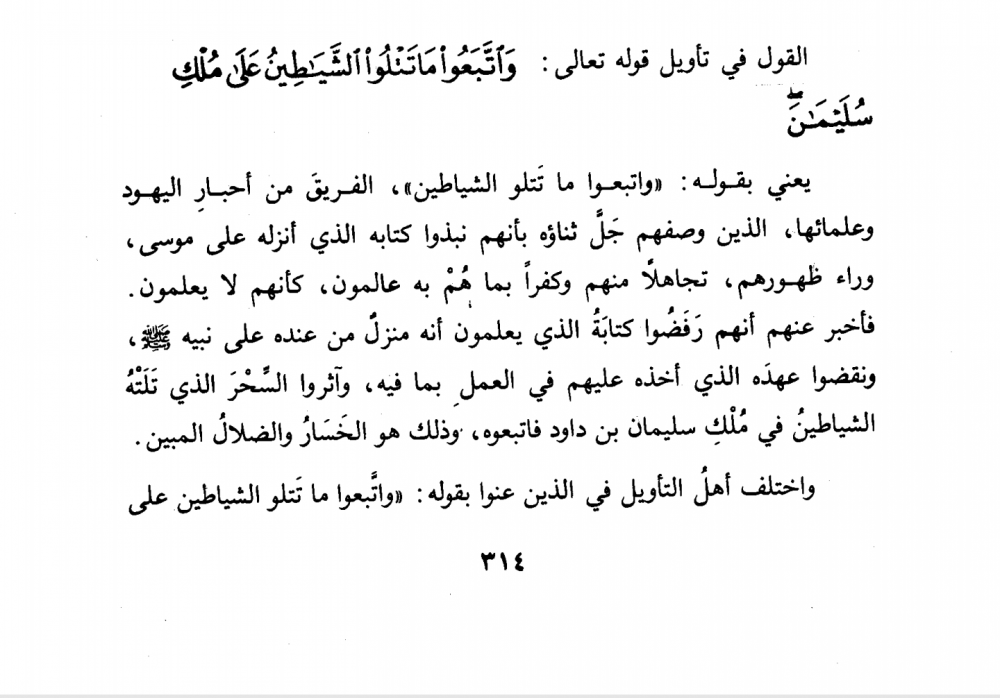 القول في تأويل قوله تعالى: وَٱتَّبَعُوا۟ مَا تَتْلُوا۟ ٱلشَّيَـٰطِينُ عَلَىٰ مُلْكِ
سُلَيْمَـٰنَ ۖ
يعني بقوله: «واتبعوا ما تَتلو الشياطين»، الفريقَ من أحبارِ اليهود
وعلمائها، الذين وصفهم جَلَّ ثناؤه بأنهم نبذوا كتابه الذي أنزله على موسى،
وراء ظهورهم، تجاهلاً منهم وكفراً بما هُمْ به عالمون، كأنهم لا يعلمون.
فأخبر عنهم أنهم رَفَضُوا كتابَةُ الذي يعلمون أنه منزلٌ من عنده على نبيه ﷺ،
ونقضوا عهدَه الذي أخذه عليهم في العملِ بما فيه، وآثروا السِّحْرَ الذي تَلَتْهُ
الشياطينُ في مُلْكِ سليمان بن داود فاتبعوه، وذلك هو الخَسَارُ والضلالُ المبين.
واختلف أهلُ التأويل في الذين عنوا بقوله: «واتَّبعوا ما تَتلو الشياطين على
٣١٤